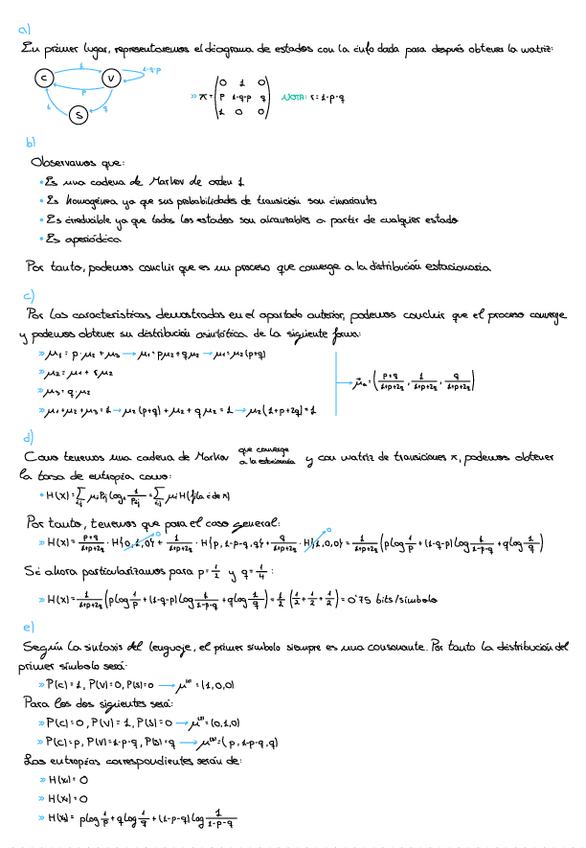 a)
En primer lugar, representaremos el diagrama de estados con la info dada para después obtener la matriz:
C 1 V 1-q-p
p
1 S q
» π = ( 0 1 0
p 1-q-p q
1 0 0 ) NOTA: r = 1-p-q
b)
Observamos que:
• Es una cadena de Markov de orden 1
• Es homogénea ya que sus probabilidades de transición son invariantes
• Es irreducible ya que todos los estados son alcanzables a partir de cualquier estado
• Es aperiódica
Por tanto, podemos concluir que es un proceso que converge a la distribución estacionaria
c)
Por las características demostradas en el apartado anterior, podemos concluir que el proceso converge
y podemos obtener su distribución asintótica de la siguiente forma:
» μ₁ = p·μ₂ + μ₃ → μ₁ = pμ₂ + qμ₂ → μ₁ = μ₂(p+q)
» μ₂ = μ₁ + rμ₂
» μ₃ = q·μ₂
» μ₁+μ₂+μ₃ = 1 → μ₂(p+q) + μ₂ + qμ₂ = 1 → μ₂(1+p+2q) = 1
→ μ⃗ₐ = ( p+q/1+p+2q , 1/1+p+2q , q/1+p+2q )
d)
Como tenemos una cadena de Markov que converge a la estacionaria y con matriz de transiciones π, podemos obtener
la tasa de entropía como:
• H(X) = Σ μᵢPᵢⱼ log 1/Pᵢⱼ = Σ μᵢ H(fila i de π)
Por tanto, tenemos que para el caso general:
» H(X) = p+q/1+p+2q · H{0,1,0} + 1/1+p+2q · H{p,1-p-q,q} + q/1+p+2q · H{1,0,0} = 1/1+p+2q (p log 1/p + (1-p-q) log 1/1-p-q + q log 1/q)
Si ahora particularizamos para p = 1/2 y q = 1/4 :
» H(X) = 1/1+p+2q (p log 1/p + (1-p-q) log 1/1-p-q + q log 1/q) = 1/2 (1/2 + 1/2 + 1/2) = 0'75 bits/símbolo
e)
Según la sintaxis del lenguaje, el primer símbolo siempre es una consonante. Por tanto la distribución del
primer símbolo será:
» P(C)=1, P(V)=0, P(S)=0 → μ⁽¹⁾ = (1,0,0)
Para los dos siguientes será:
» P(C)=0, P(V)=1, P(S)=0 → μ⁽²⁾ = (0,1,0)
» P(C)=p, P(V)=1-p-q, P(S)=q → μ⁽³⁾ = (p,1-p-q,q)
Las entropías correspondientes serán de:
» H(X₁) = 0
» H(X₂) = 0
» H(X₃) = p log 1/p + q log 1/q + (1-p-q) log 1/1-p-q